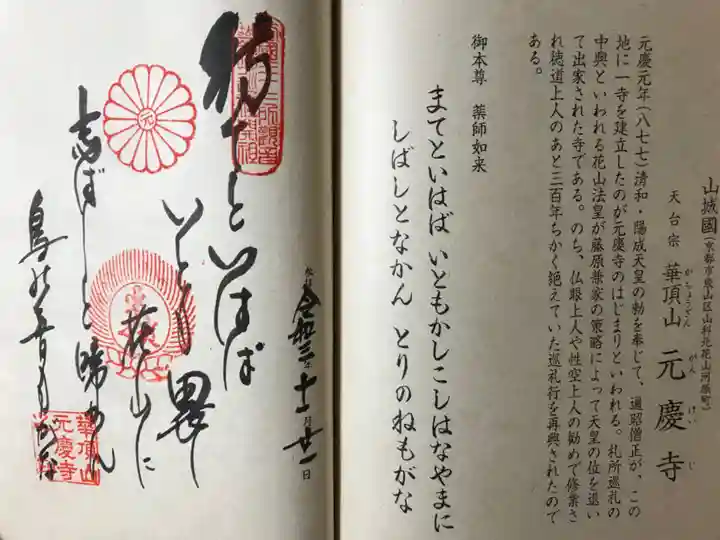 山城國(京都市東山区山科北花山河原町)
天台宗 華頂山 元慶寺
かちょうざん がんけいじ
元慶元年(八七七)清和・陽成天皇の勅を奉じて、遍昭僧正が、この
地に一寺を建立したのが元慶寺のはじまりといわれる。札所巡礼の
中興といわれる花山法皇が藤原兼家の策略によって天皇の位を退い
て出家された寺である。のち、仏眼上人や性空上人の勧めで修業さ
れ徳道上人のあと三百年ちかく絶えていた巡礼行を再興されたので
ある。
御本尊 薬師如来
まてといはば いともかしこしはなやまに
しばしとなかん とりのねもがな
令和三年十一月廿一日
待てといはば
いとも畏し
花山に
志ばしと啼かん
鳥の音もがな
元
華頂山
元慶寺